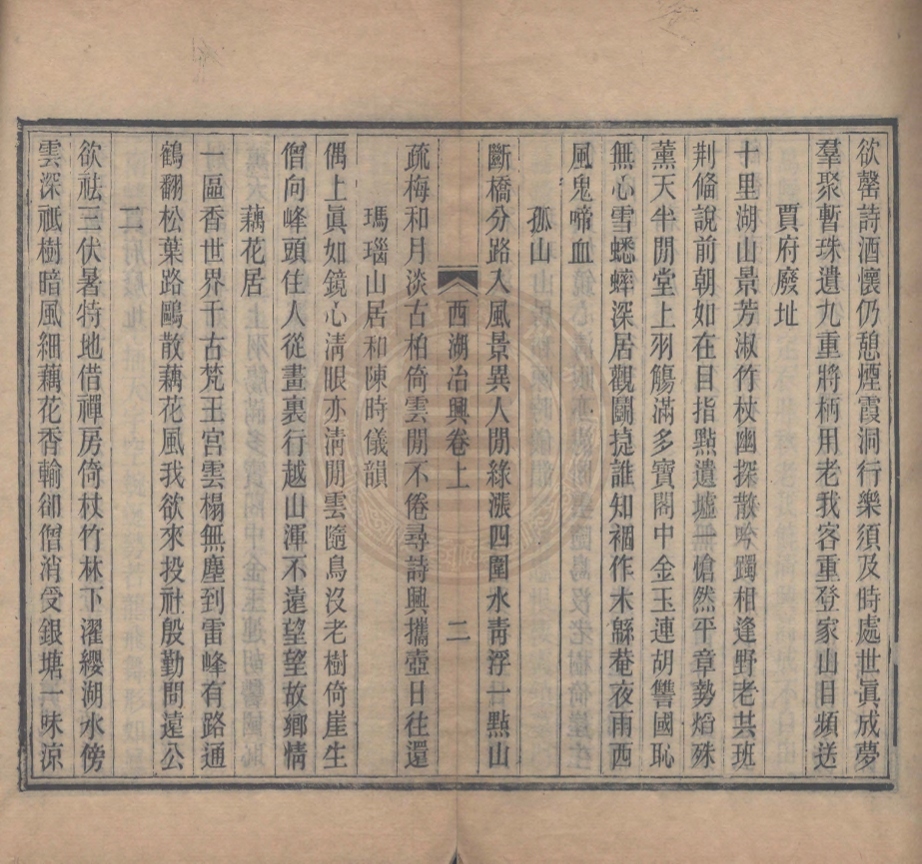 欲罄詩酒懷仍憩煙霞洞行樂須及時處世眞成夢
羣聚暫珠遺九重將柄用老我客重登家山日頻送
賈府廢址
十里湖山景芳淑竹杖幽探散吟躅相逢野老共班
荆偹說前朝如在目指點遺墟一愴然平章勢焰殊
薰天半閒堂上羽觴滿多寶閣中金玉連胡讐國恥
無心雪蟋蟀深居觀鬭捷誰知禍作木緜菴夜雨西
風鬼啼血
孤山
斷橋分路入風景異人閒綠漲四圍水靑浮一點山
疏梅和月淡古柏倚雲閒不倦尋詩興攜壺日往還
西湖冶興卷上 二
瑪瑙山居和陳時儀韻
偶上眞如鏡心淸眼亦淸閒雲隨鳥沒老樹倚崖生
僧向峰頭住人從畫裏行越山渾不遠望望故鄉情
藕花居
一區香世界千古梵王宮雲榻無塵到雷峰有路通
鶴翻松葉路鷗散藕花風我欲來投社殷勤問遠公
二
欲祛三伏暑特地借禪房倚杖竹林下濯纓湖水傍
雲深祗樹暗風細藕花香輸卻僧消受銀塘一味涼